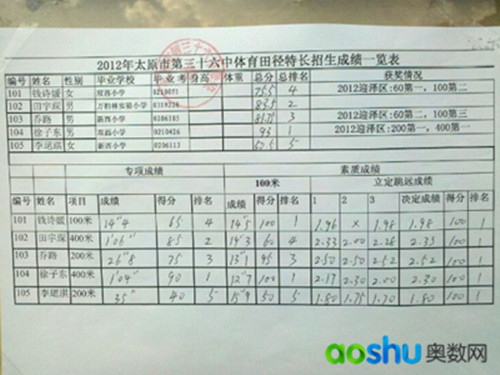 2012年太原市第三十六中体育田径特长招生成绩一览表
编号 姓名 性别 毕业学校 毕业考 身高 体重 总分 总排名 获奖情况
101 钱诗媛 女 双西小学 0210051 75.5 4 2012迎泽区:60第一，100第二
102 田宇琛 男 万柏林实验小学 83.5 2
103 乔路 男 新西小学 0206185 81.75 3 2012迎泽区:60第二，100第三
104 徐子东 男 双西小学 0210426 93 1 2012迎泽区:200第一，400第一
105 女 新西小学 0206113 5
专项成绩 素质成绩
100米 立定跳远成绩
编号 姓名 项目 成绩 得分 排名 成绩 得分 排名 1 2 3 决定成绩 得分 排名
101 钱诗媛 100米 14"4 65 4 14"5 100 1 1.96 × 1.98 1.98 100 1
102 田宇琛 400米 1'06" 85 2 14"3 60 4 2.33 2.00 2.28 2.33 100 1
103 乔路 200米 26"8 75 3 13"1 95 3 2.50 2.50 2.52 2.52 100 1
104 徐子东 400米 1'04" 90 1 12"7 100 1 2.17 2.30 2.00 2.30 100 1
105 200米 35" 40 5 15"9 50 5 1.80 1.75 1.70 1.80 100 1
aoshu奥数网